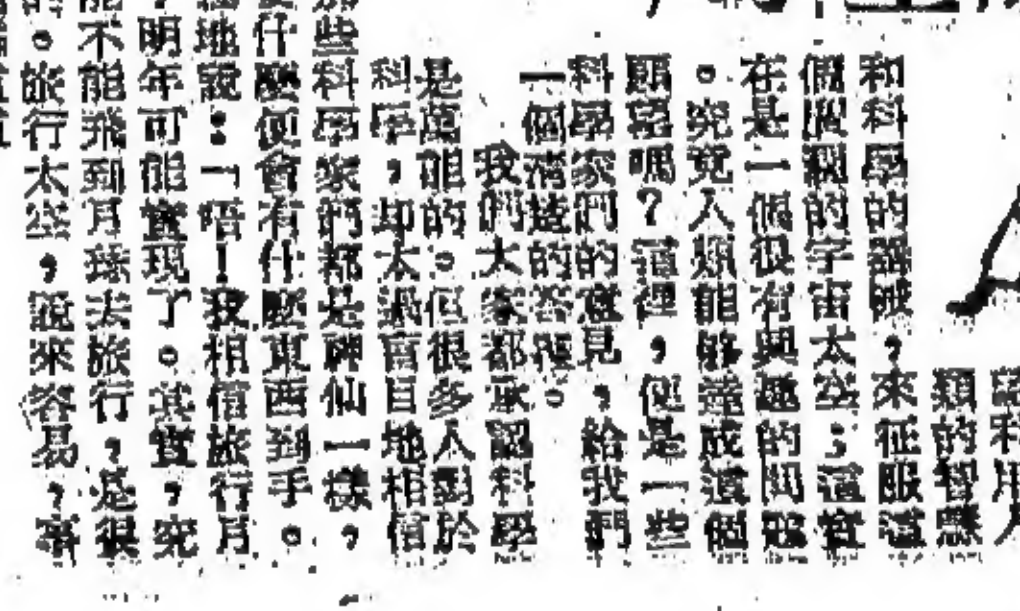 類的智慧
和科學的器械，來征服這
個遼闊的宇宙太空；這實
在是一個很有興趣的問題
。究竟人類能夠達成這個
願望嗎？這裡，便是一些
科學家們的意見，給我們
一個清楚的答覆。
我們大家都承認科學
是萬能的。但很多人對於
科學，却太過盲目地相信
那些科學家們都是神仙一樣，
什麼便會有什麼東西到手。
地說：「唔！我相信旅行月
明年可能實現了。其實，究
不能飛到月球去旅行，是很
。旅行太空，說來容易，